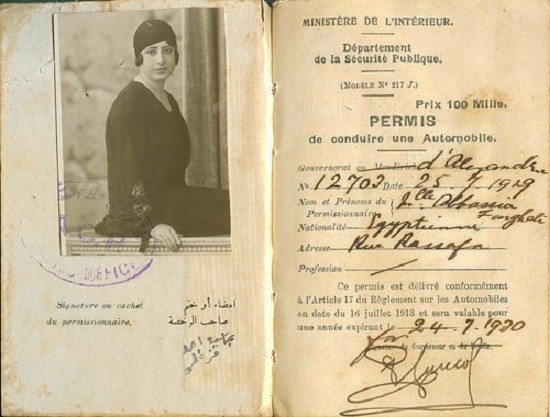 Signature ou cachet
du permissionnaire.
امضاء أو ختم
صاحب الرخصة
MINISTÈRE DE L'INTÉRIEUR.
Département
de la Sécurité Publique.
(MODÈLE N° 117 J.)
Prix 100 Mills.
PERMIS
de conduire une Automobile.
Gouvernorat ou Moudirieh d'Alexandrie
N° 12703 Date 25-7-1929
Nom et Prénoms du Mlle Abbassia
Permissionnaire, Farghali
Nationalité Egyptienne
Adresse Rue Rassafa
Profession
Ce permis est délivré conformément
à l'Article 17 du Règlement sur les Automobiles
en date du 16 juillet 1913 et sera valable pour
une année expirant le 24-7-1930